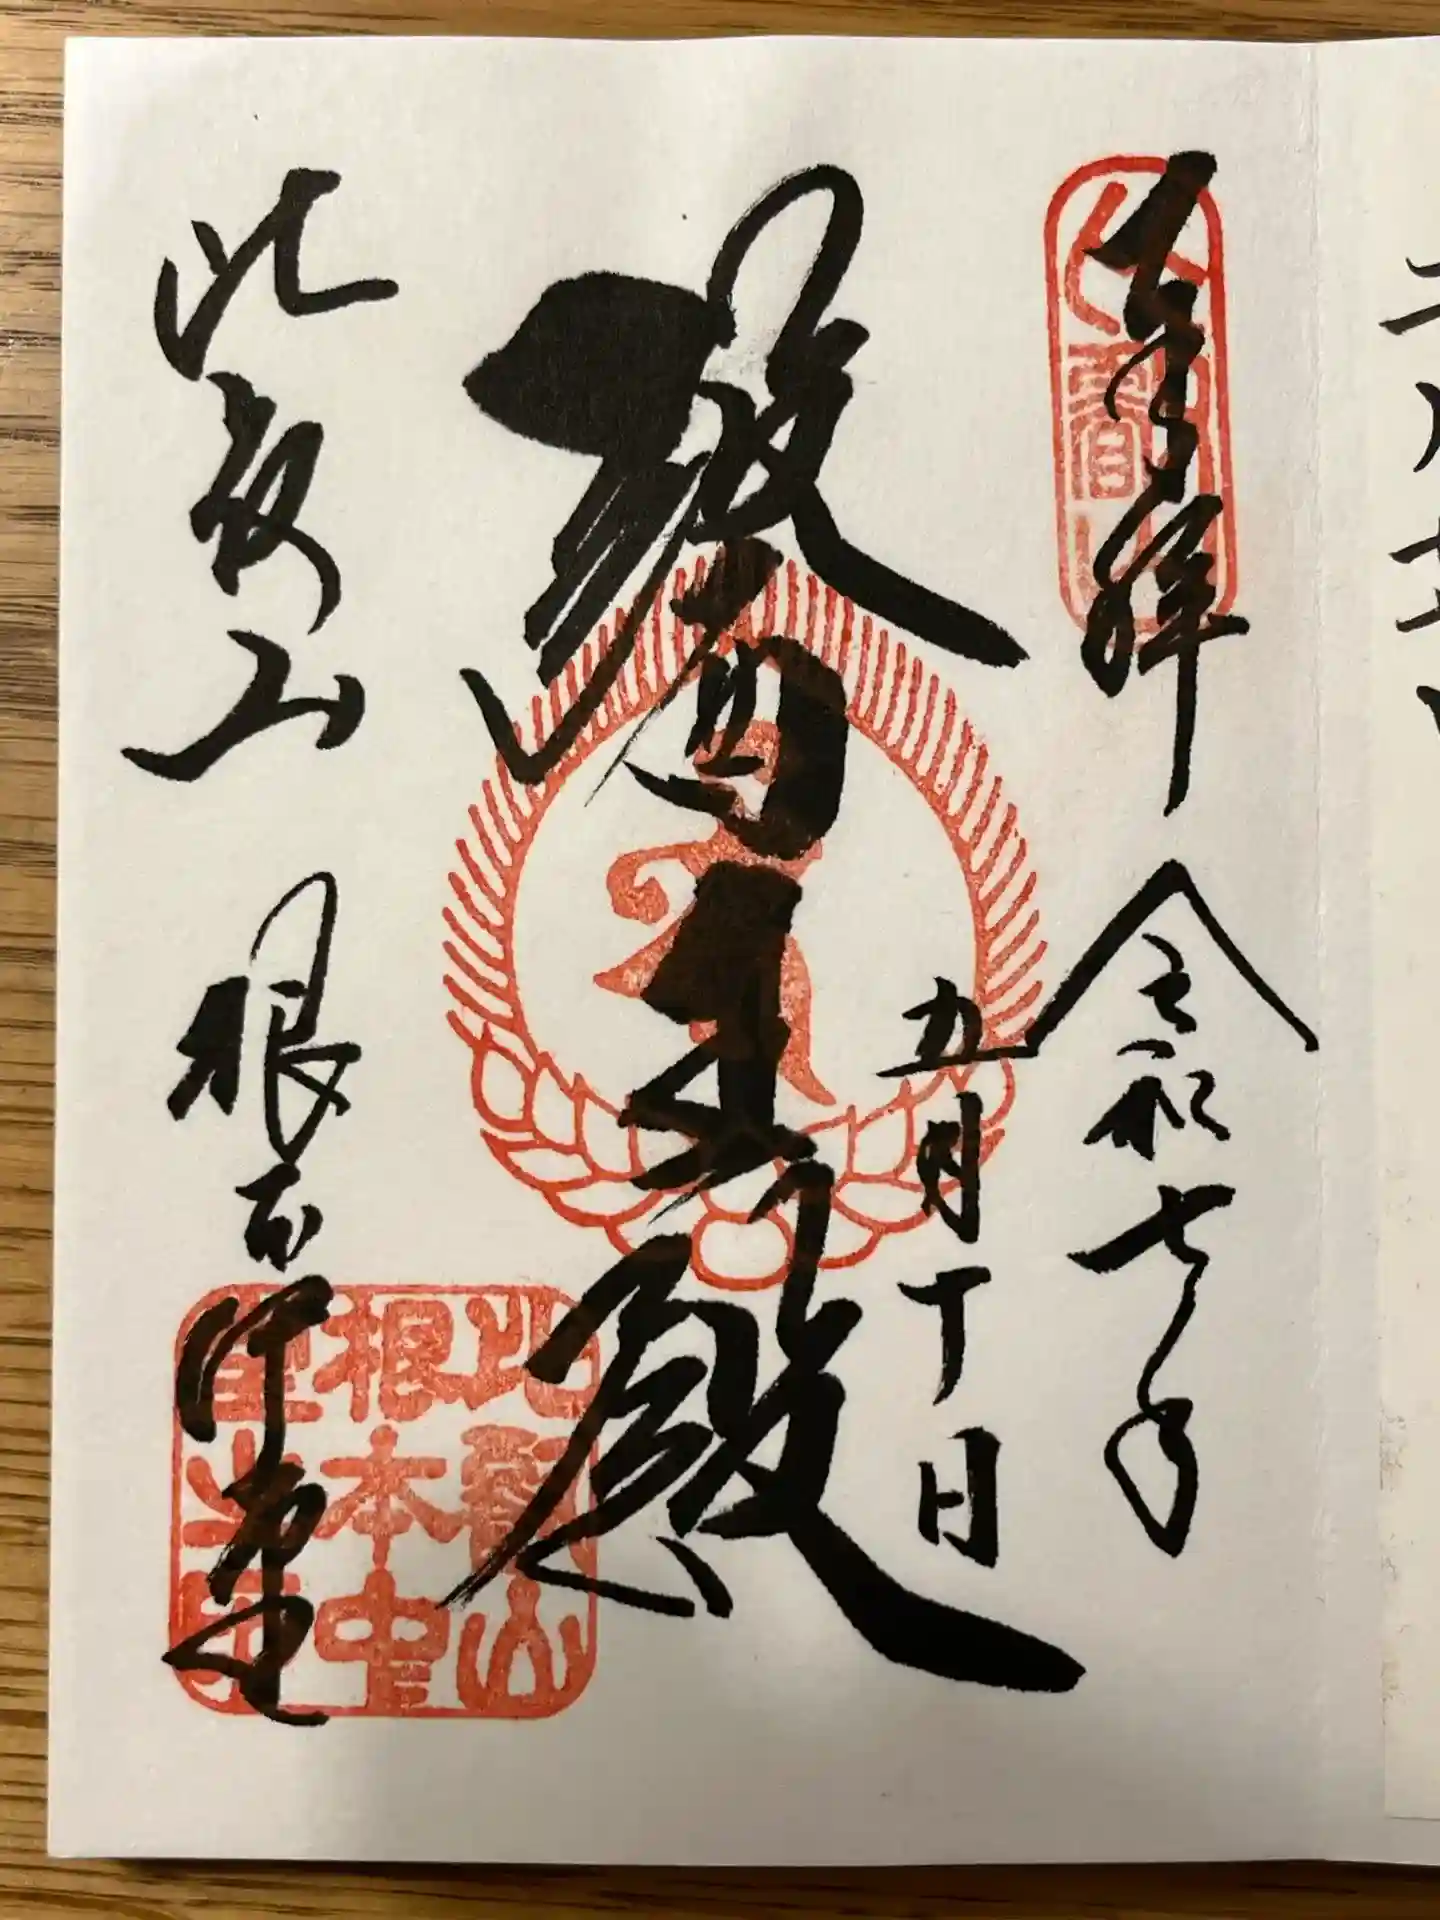 奉拝
令和七年
九月十日
醫王殿
比叡山 根本中堂
比叡山
根本中
堂之印